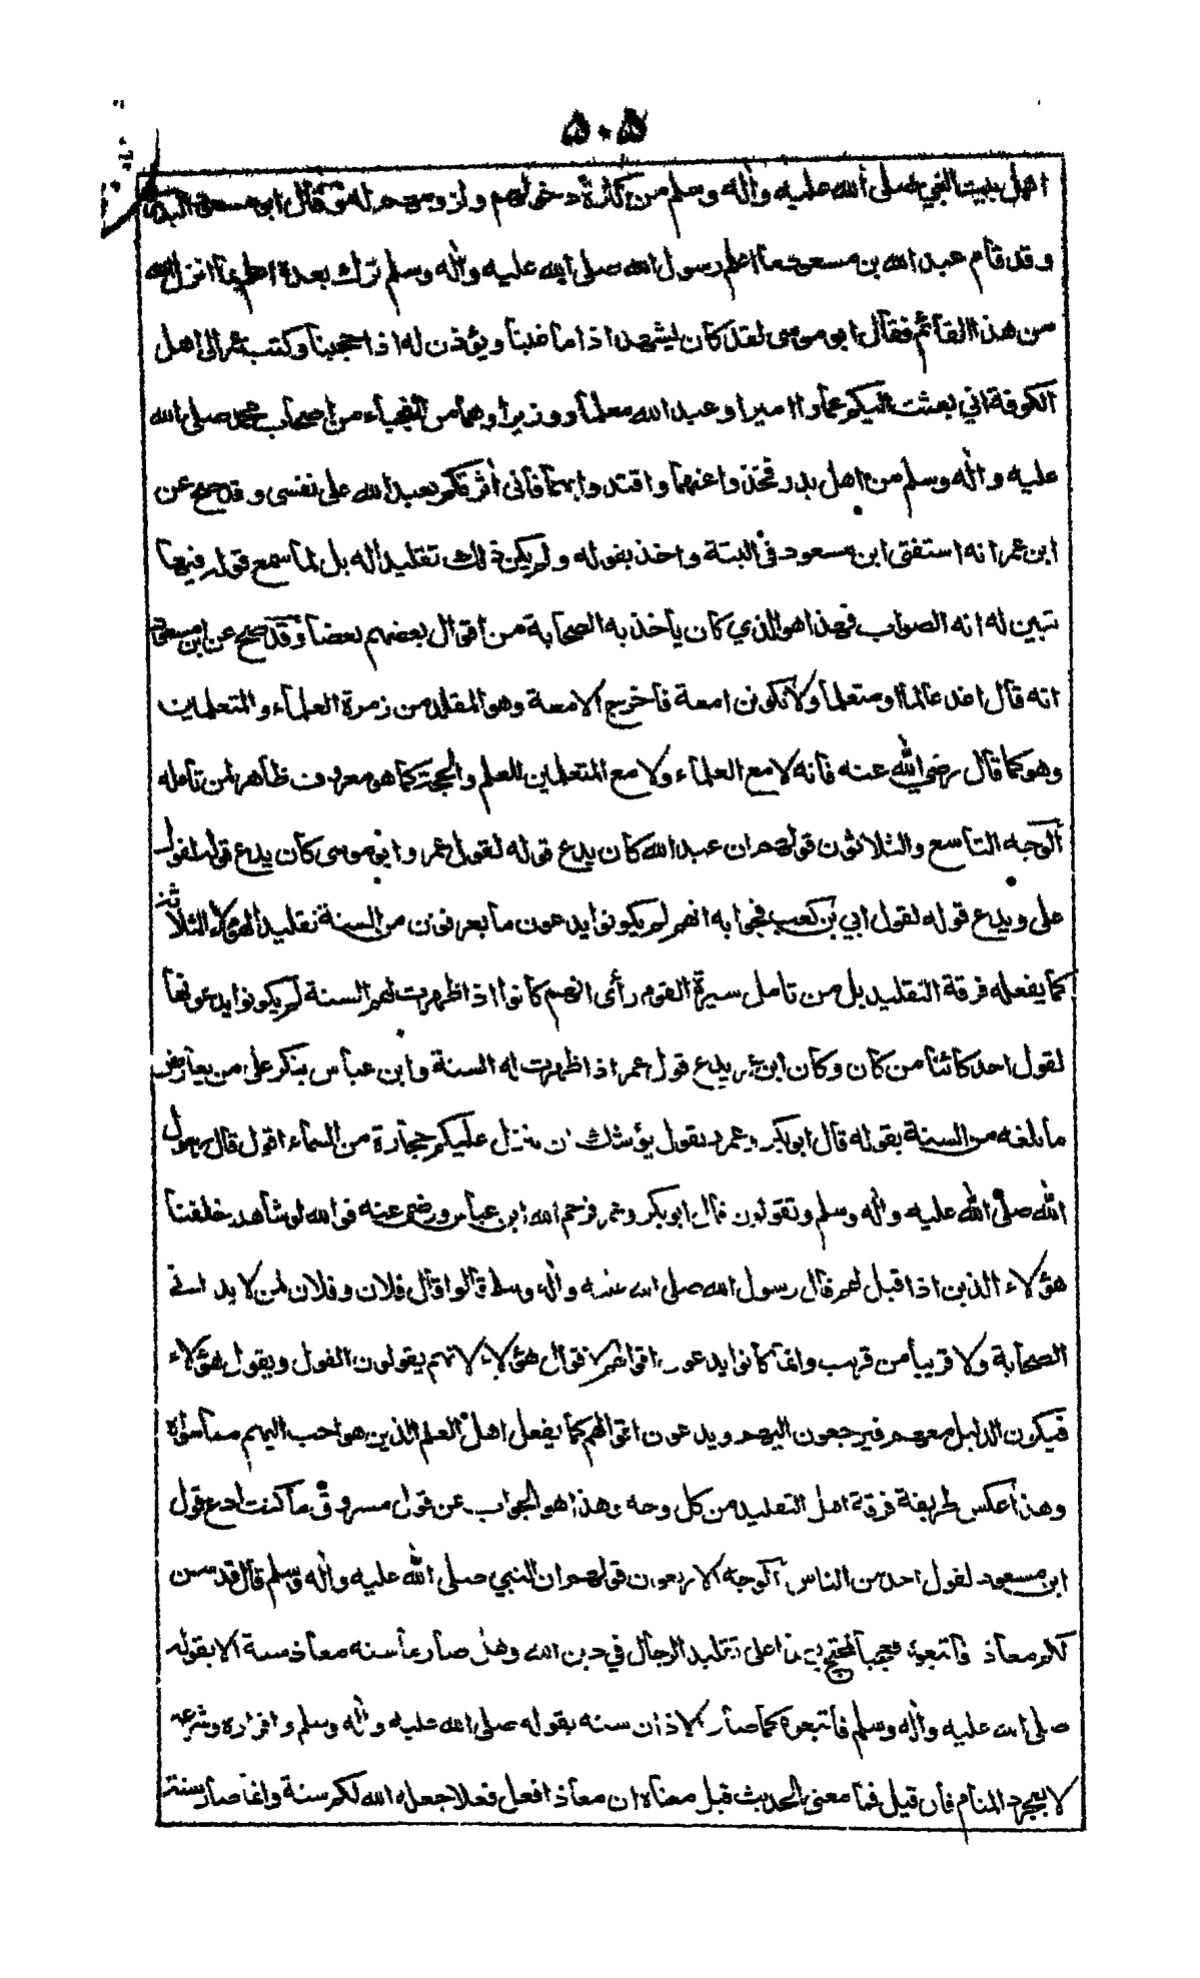 ۵۰۵
اهل بيت النبي صلى الله عليه وأله وسلم من كثرة دخولهم ولزومهم له وقال ابو مسعود البدري
وقد قام عبد الله بن مسعود ما اعلم رسول الله صلى الله عليه وأله وسلم ترك بعدة اعلم بما انزل الله
من هذا القائم فقال ابو موسى لقد كان ليشهد اذا ما غبنا ويؤذن له اذا حجبنا وكتب عمر الى اهل
الكوفة اني بعثت اليكم عمارا اميرا وعبد الله معلما ووزيرا وهما من النجباء من اصحاب محمد صلى الله
عليه وأله وسلم من اهل بدر فخذوا عنهما واقتدوا بهما فانى أثرتكم بعبد الله على نفسى وقد صح عن
ابن عمر انه استفتى ابن مسعود في البتة واخذ بقوله ولم يكن ذلك تقليدا له بل لما سمع قوله فيها
تبين له انه الصواب فهذا هو الذي كان يأخذ به الصحابة من اقوال بعضهم بعضا وقد صح عن ابن مسعود
انه قال اغد عالما او متعلما ولا تكونن امعة فأخرج الامعة وهو المقلد من زمرة العلماء والمتعلمين
وهو كما قال رضي الله عنه فانه لا مع العلماء ولا مع المتعلمين للعلم والحجة كما هو معروف ظاهر لمن تأمله
ألوجه التاسع والثلاثون قولهم ان عبد الله كان يدع قوله لقول عمر وابو موسى كان يدع قوله لقول
على ويدع قوله لقول ابي بن كعب فجوابه انهم لم يكونوا يدعون ما يعرفون من السنة تقليدا لهؤلاء الثلاثة
كما يفعله فرقة التقليد بل من تامل سيرة القوم رأى انهم كانوا اذا ظهرت لهم السنة لم يكونوا يدعونها
لقول احد كائنا من كان وكان ابن عمر يدع قول عمر اذا ظهرت له السنة وابن عباس ينكر على من يعارض
ما بلغه من السنة بقوله قال ابوبكر وعمر ويقول يؤشك ان تنزل عليكم حجارة من السماء اقول قال رسول
الله صلى الله عليه وأله وسلم وتقولون قال ابوبكر وعمر فرحم الله ابن عباس ورضى عنه فوالله لو شاهد خلفنا
هؤلاء الذين اذا قيل لهم قال رسول الله صلى الله عليه وأله وسلم قالوا قال فلان وفلان لمن لا يدانے
الصحابة ولا قريبا من قريب وانما كانوا يدعون اقوالهم لاقوال هؤلاء لانهم يقولون القول ويقول هؤلاء
فيكون الدليل معهم فيرجعون اليهم ويدعون اقوالهم كما يفعل اهل العلم الذين هو احب اليهم مما سواه
وهذا عكس طريقة فرقة اهل التقليد من كل وجه وهذا هو الجواب عن قول مسروق ما كنت ادع قول
ابن مسعود لقول احد من الناس ألوجه الاربعون قولهم ان النبي صلى الله عليه وأله وسلم قال قد سن
لكم معاذ فأتبعوه فعجبا لمحتج بهذا على تقليد الرجال في دين الله وهل صار ما سنه معاذ سنة الا بقوله
صلى الله عليه وأله وسلم فأتبعوه كما صار الاذان سنه بقوله صلى الله عليه وأله وسلم واقراره وشرعه
لا بمجرد المنام فان قيل فما معنى الحديث قيل معناه ان معاذا فعل فعلا جعله الله لكم سنة وانما صار سنة